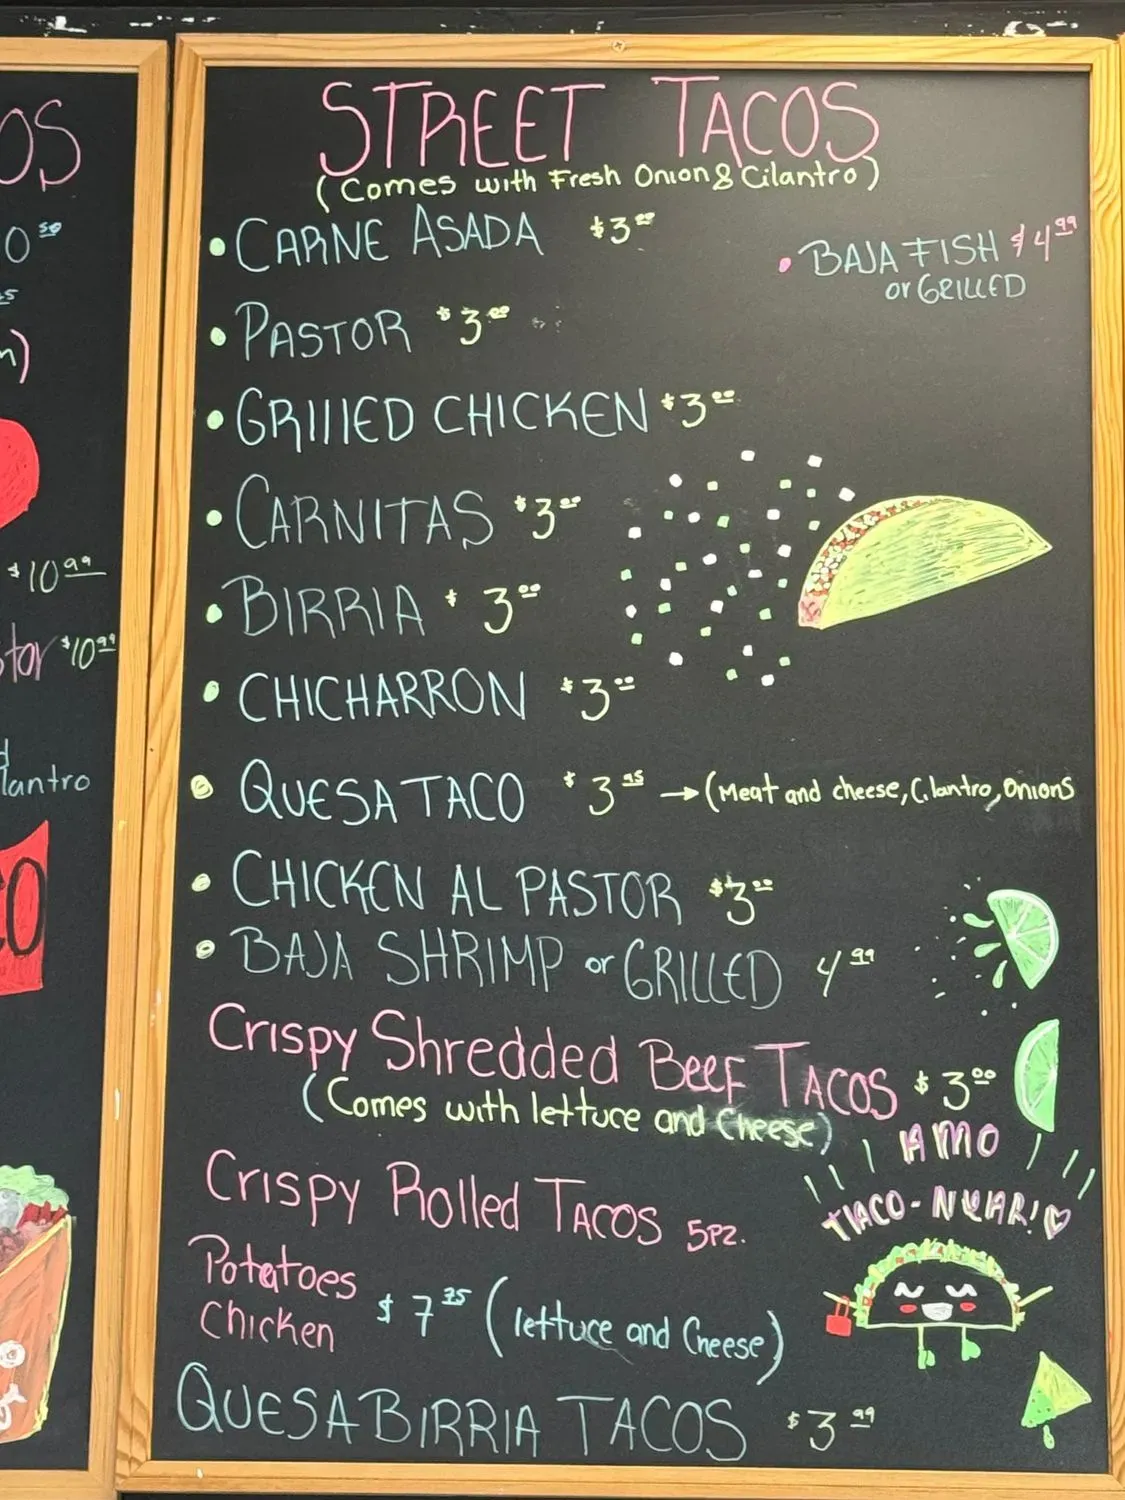 OS
0 50
$10 99
tor $10 99
lantro
STREET TACOS
(Comes with Fresh Onion & Cilantro)
• CARNE ASADA $3 00
• BAJA FISH $4 99
or GRILLED
• PASTOR $3 00
• GRIllED CHICKEN $3 00
• CARNITAS $3 00
• BIRRIA $3 00
• CHICHARRON $3 00
• QUESA TACO $3 95 → (Meat and cheese, Cilantro, Onions
• CHICKEN AL PASTOR $3 00
• BAJA SHRIMP or GRILLED 4 99
Crispy Shredded Beef TACOS $3 00
(Comes with lettuce and Cheese)
Crispy Rolled TACOS 5pz.
Potatoes
Chicken
$7 75 (lettuce and Cheese)
QUESABIRRIA TACOS $3 99
AMO